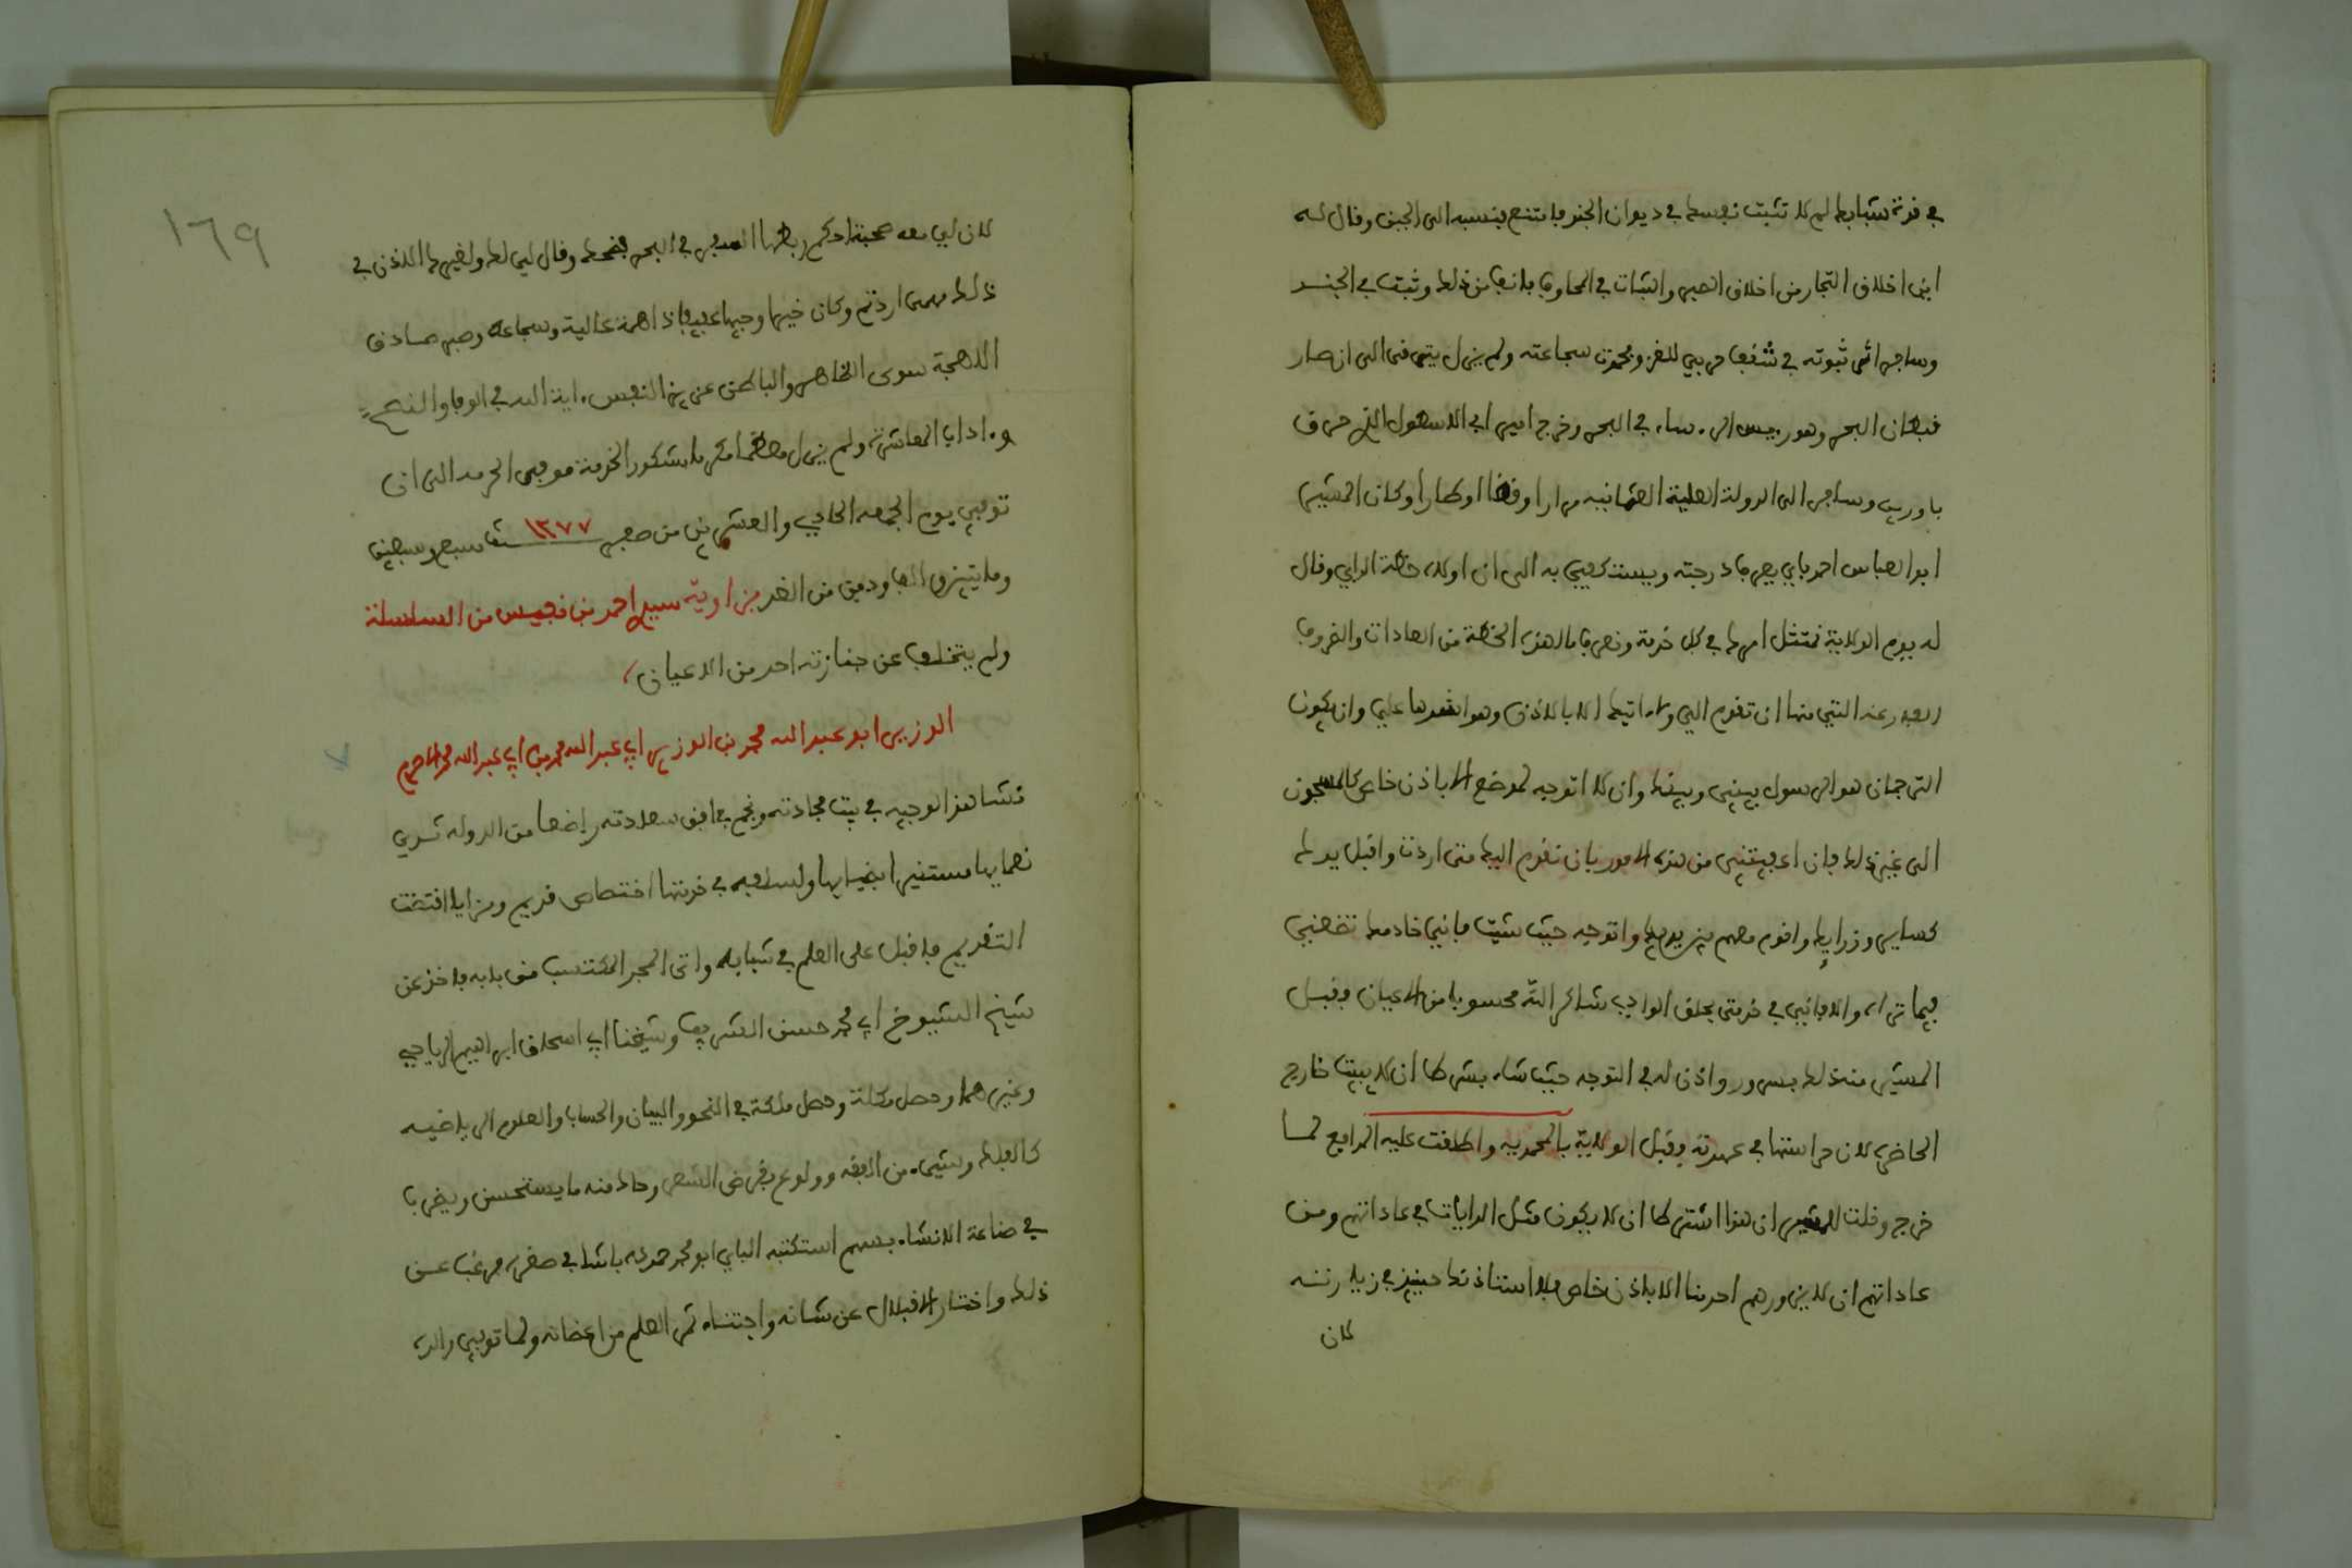 في قوة شبابك لم لا تثبت نفسك في ديوان الجند فامتنع فنسبه الى الجبن وقال له
اين اخلاق التجار من اخلاق الصبر والثبات في المخاوف فانف من ذلك وثبت في الجند
وسافر اثر ثبوته في شقف حربي للغزو وحمدت شجاعته ولم يزل يترقى الى ان صار
قبطان البحر وهو رييس الرءساء في البحر وخرج امير اى الاسطول الذي حرق
باورين وسافر الى الدولة العلية العثمانية مرارا وقضا اوطارا وكان المشير
ابو العباس احمد باي يعرف درجته ويستكفي به الى ان اولاه خطة الداي وقال
له يوم الولاية نمتثل امرك في كل خدمة ونعرف ما لهذه الخطة من العادات والفروق
البعيدة التي منها ان تقوم الي ولا اتيك الا بالاذن وهو اشدها علي وان يكون
الترجمان هو الرسول بيني وبينك وان لا اتوجه لموضع الا باذن خاص كالمسجون
الى غير ذلك فان اعفيتني من هذه الامور بان نقوم اليك متى اردت واقبل يدك
كساير وزرايك واقوم معهم بين يديك واتوجه حيث شيت فاني خادمك تضعني
فيما تراه والا فاني في خدمتي بحلق الوادي شاكر الله محسوبا من الاعيان فقبل
المشير منه ذلك بسرور واذن له في التوجه حيث شاء بشرط ان لا يبيت خارج
الحاضرة لان حراستها في عهدته وقبل الولاية بالمحمدية واطلقت عليه المدافع لما
خرج وقلت للمشير ان هذا اشترط ان لا يكون مثل الدايات في عاداتهم ومن
عاداتهم ان لا يزورهم احد منا الا باذن خاص فلا استاذنك حينيذ في زيارته
كان
١٦٩
لان لي معه صحبة احكم ربطها السفر في البحر فضحك وقال لي لك ولغيرك الاذن في
ذلك مهما اردتم وكان خيرا وجيها عفيفا ذا همة عالية وشجاعة وصبر صادق
اللهجة سوى الظاهر والباطن عزيز النفس ءاية الله في الوفا والنصح
وءاداب المعاشرة ولم يزل معظما مكرما مشكور الخدمة موفى الحرمة الى ان
توفي يوم الجمعة الحادي والعشرين من صفر ١٢٧٧ سنة سبع وسبعين
ومايتين والف ودفن من الغد بزاوية سيدي احمد بن نفيس من السلسلة
ولم يتخلف عن جنازته احد من الاعيان
الوزير ابو عبد الله محمد بن الوزير ابي عبد الله محمد بن ابي عبد الله محمد الاصرم
نشا هذا الوجيه في بيت مجادته ونجم في افق سعادته راضعا من الدولة ثدي
نعمايها مستنيرا بضيايها ولسلفه في خدمتها اختصاص قديم ومزايا اقتضت
التقديم فاقبل على العلم في شبابه واتى المجد المكتسب من بابه فاخذ عن
شيخ الشيوخ ابي محمد حسن الشريف وشيخنا ابي اسحاق ابراهيم الرياحي
وغيرهما وحصل وحصل ملكة في النحو والبيان والحساب والعلوم الرياضية
كالفلك وشيء من الفقه وولوع بقرض الشعر وحاك منه ما يستحسن ويضرب
في صناعة الانشاء بسهم استكتبه الباي ابو محمد حموده باشا في صغره فرغب عن
ذلك واختار الاقبال عن شانه واجتناء ثمر العلم من اغصانه ولما توفي والده